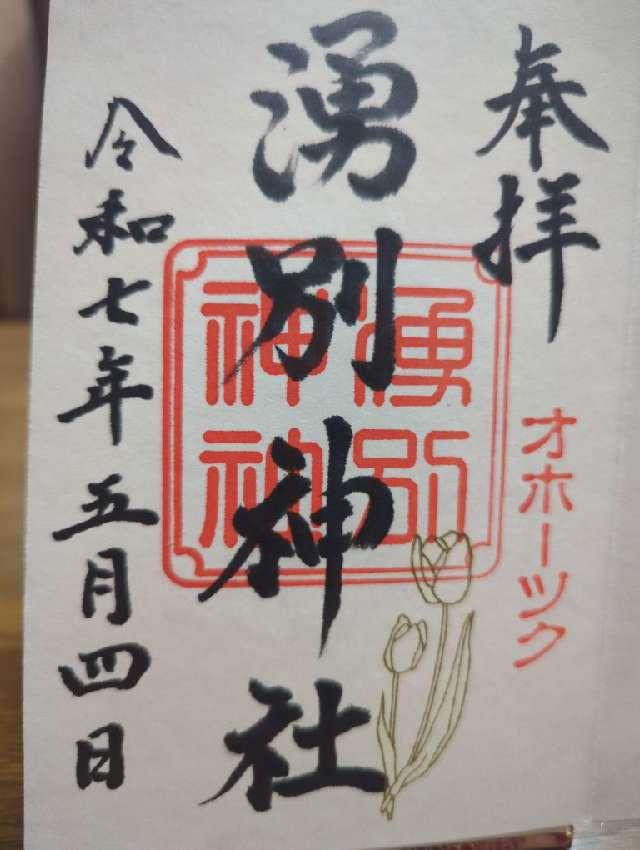 奉拝
オホーツク
湧別神社
湧別
神神
令和七年五月四日